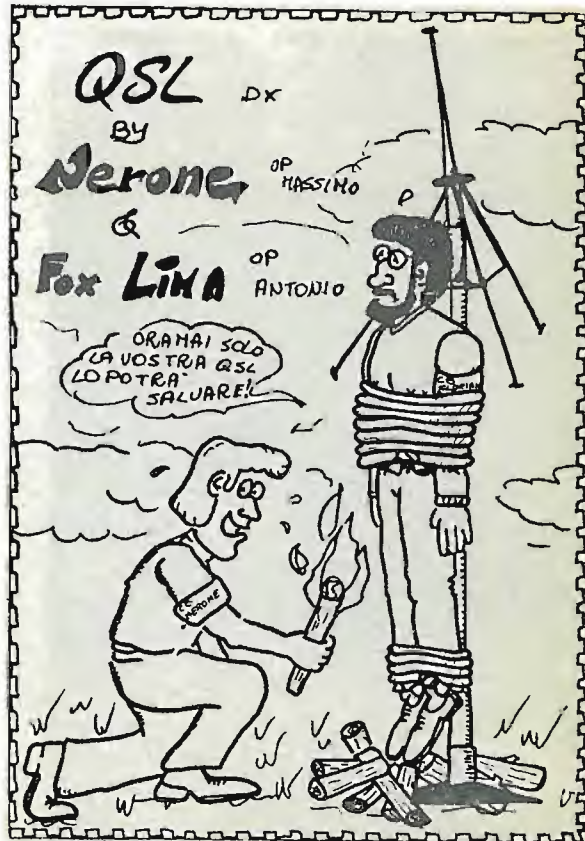 QSL DX
BY
Nerone OP MASSIMO
&
Fox LIMA OP ANTONIO
ORAMAI SOLO
LA VOSTRA QSL
LO POTRA'
SALVARE!
NERONE